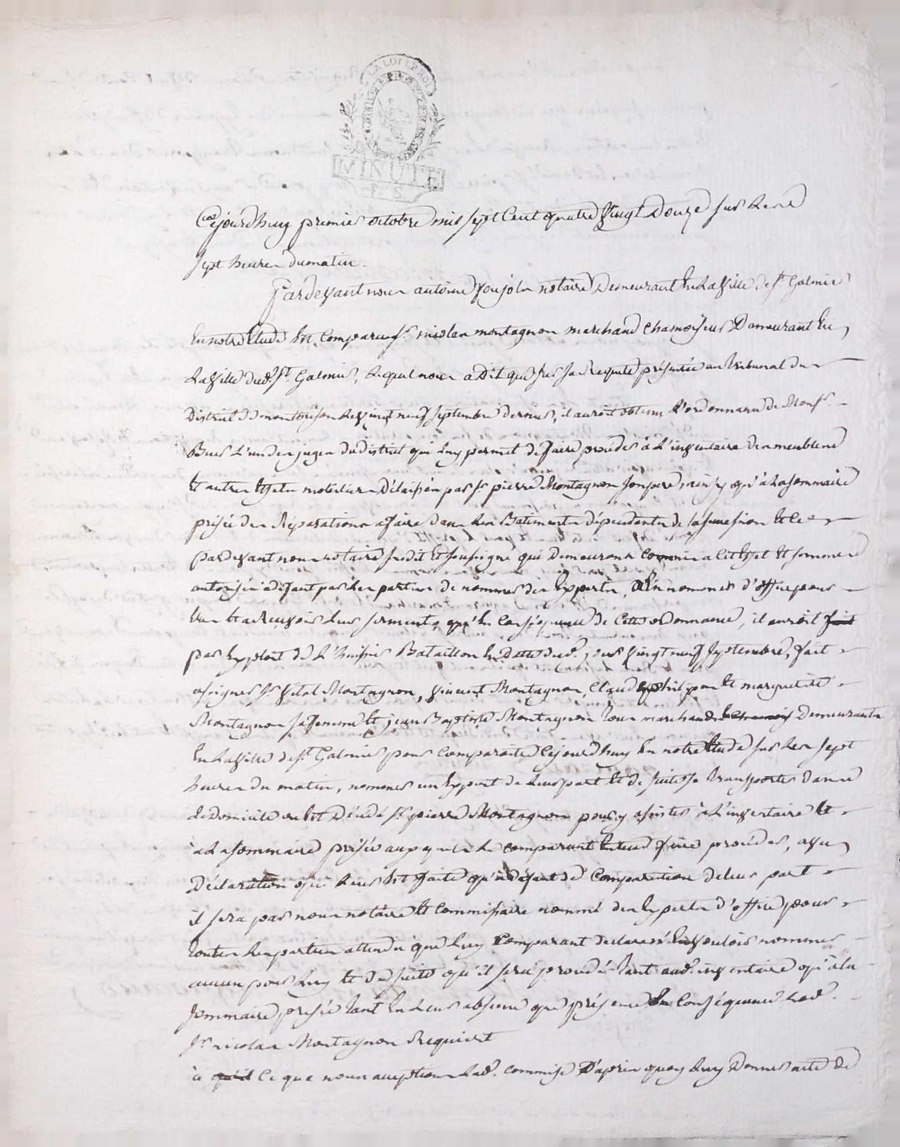 LA LOI ET LE ROI
MINUTE
Cejourdhuy premier octobre mil sept Cent quatre Vingt Douze sur les
sept heures du matin.
Pardevant nous antoine notaire Demeurant En La Ville de St Galmier
En notre Etude Est Comparu sr nicolas montagnon marchand Chamoiseur Demeurant En
La Ville dud. St Galmier, Lequel nous a Dit que sur sa Requete présentée au tribunal du
District de montbrison Le vingt neuf septembre dernier, il auroit obtenu L'ordonnance de Mons.
L'un des juges du district qui Luy permet de faire proceder à L'inventaire des meubles
Et autres Effets mobiliers Délaissés par sr pierre Montagnon son père, ainsy qu'à La sommaire
prisée des Réparations affaire dans Les Batiments dépendants de sa succession Et ce
pardevant nous notaire susdit Et soussigné qui Demeurons commis a cet Effet Et sommes
autorisés a défaut par Les parties de nommer des Experts, d'En nommer d'office pour
Eux Et a recevoir Leur serment, qu'En Conséquence de Cette ordonnance, il auroit fait
par Exploit de L'huissier Bataillon En Date dud. jour Vingt neuf septembre, fait
assigner sr Vital Montagnon, Vincent Montagnon, Claude petit Et marguerite
Montagnon sa femme Et jean Baptiste Montagnon tous marchands Demeurants
En La Ville de St Galmier pour Comparoitre Cejourdhuy En notre Etude sur Les sept
heures du matin, nommer un Expert de Leur part Et de suitte se transporter dans
Le domicile ou Est Décédé sr pierre Montagnon pour y assister à L'inventaire Et
à La sommaire prisée auxquels Le comparant Entend faire proceder, avec
Déclaration qui Leur Est faite qu'a défaut de Comparution de Leur part
il sera par nous notaire Et Commissaire nommé des Experts d'office pour
toutes Les parties attendu que Luy Comparant declare n'En vouloir nommer
aucun pour Luy Et de suitte qu'il sera procedé tant aud. inventaire qu'a La
sommaire prisée tant En Leur absence que présence En Conséquence Led.
sr nicolas Montagnon Requiert
à ce que nous acceptions Lad. commise D'après quoy Luy Donner acte de